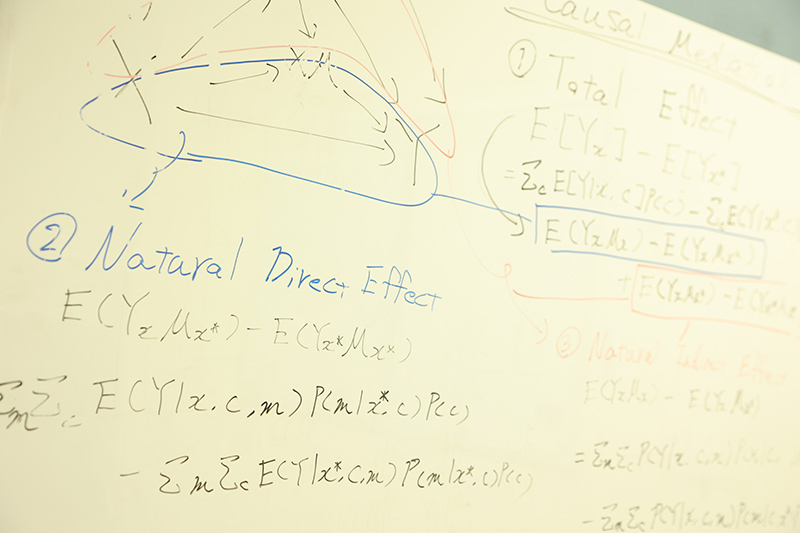 Causal
X
M
Y
① Total Effect
E[Yx] - E[Yx*]
= Σc E[Y|x, c]P(c) - Σc E(Y|x*, c
E(YxMx) - E(YxMx*)
+ E(YxMx*) - E(Yx*Mx*
② Nataral Direct Effect
E(YxMx*) - E(Yx*Mx*)
ΣmΣc E(Y|x, c, m) P(m|x*, c) P(c)
- ΣmΣc E(Y|x*, c, m) P(m|x*, c) P(c)
③ Natural Effect
E(YxMx) - E(YxMx*)
= ΣmΣc P(Y|x, c, m) P(
- ΣmΣc P(Y|x, c, m) P(m|x*